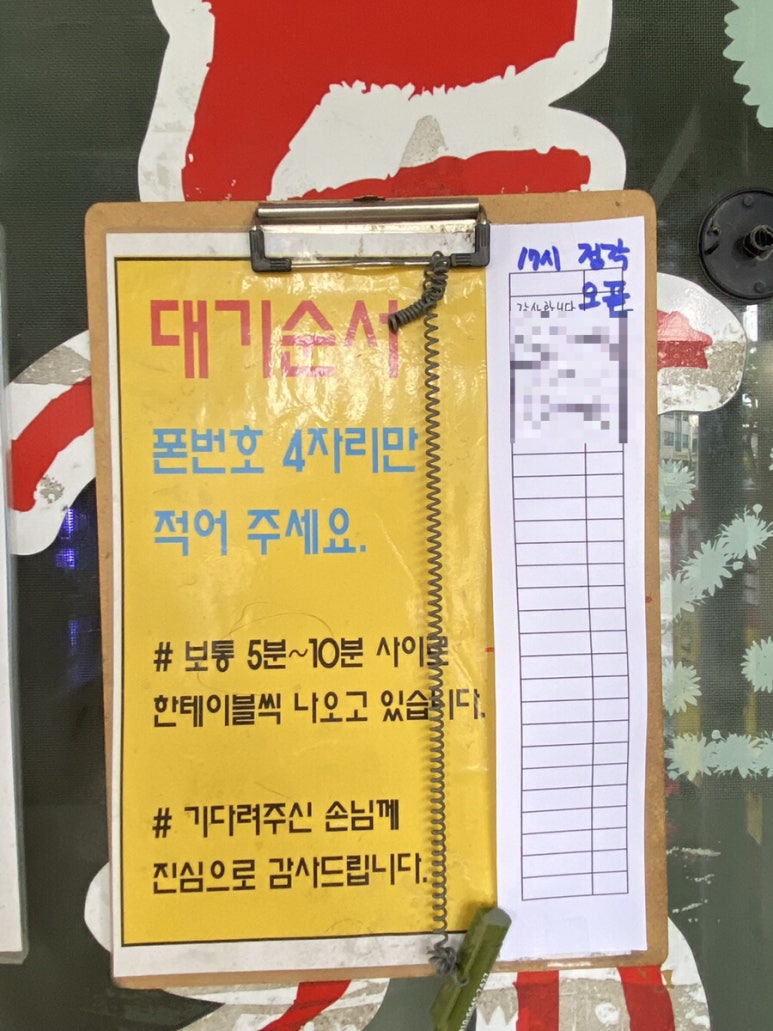 대기순서
폰번호 4자리만
적어 주세요.
# 보통 5분~10분 사이로
한테이블씩 나오고 있습니다.
# 기다려주신 손님께
진심으로 감사드립니다.
17시 정각
오픈
감사합니다